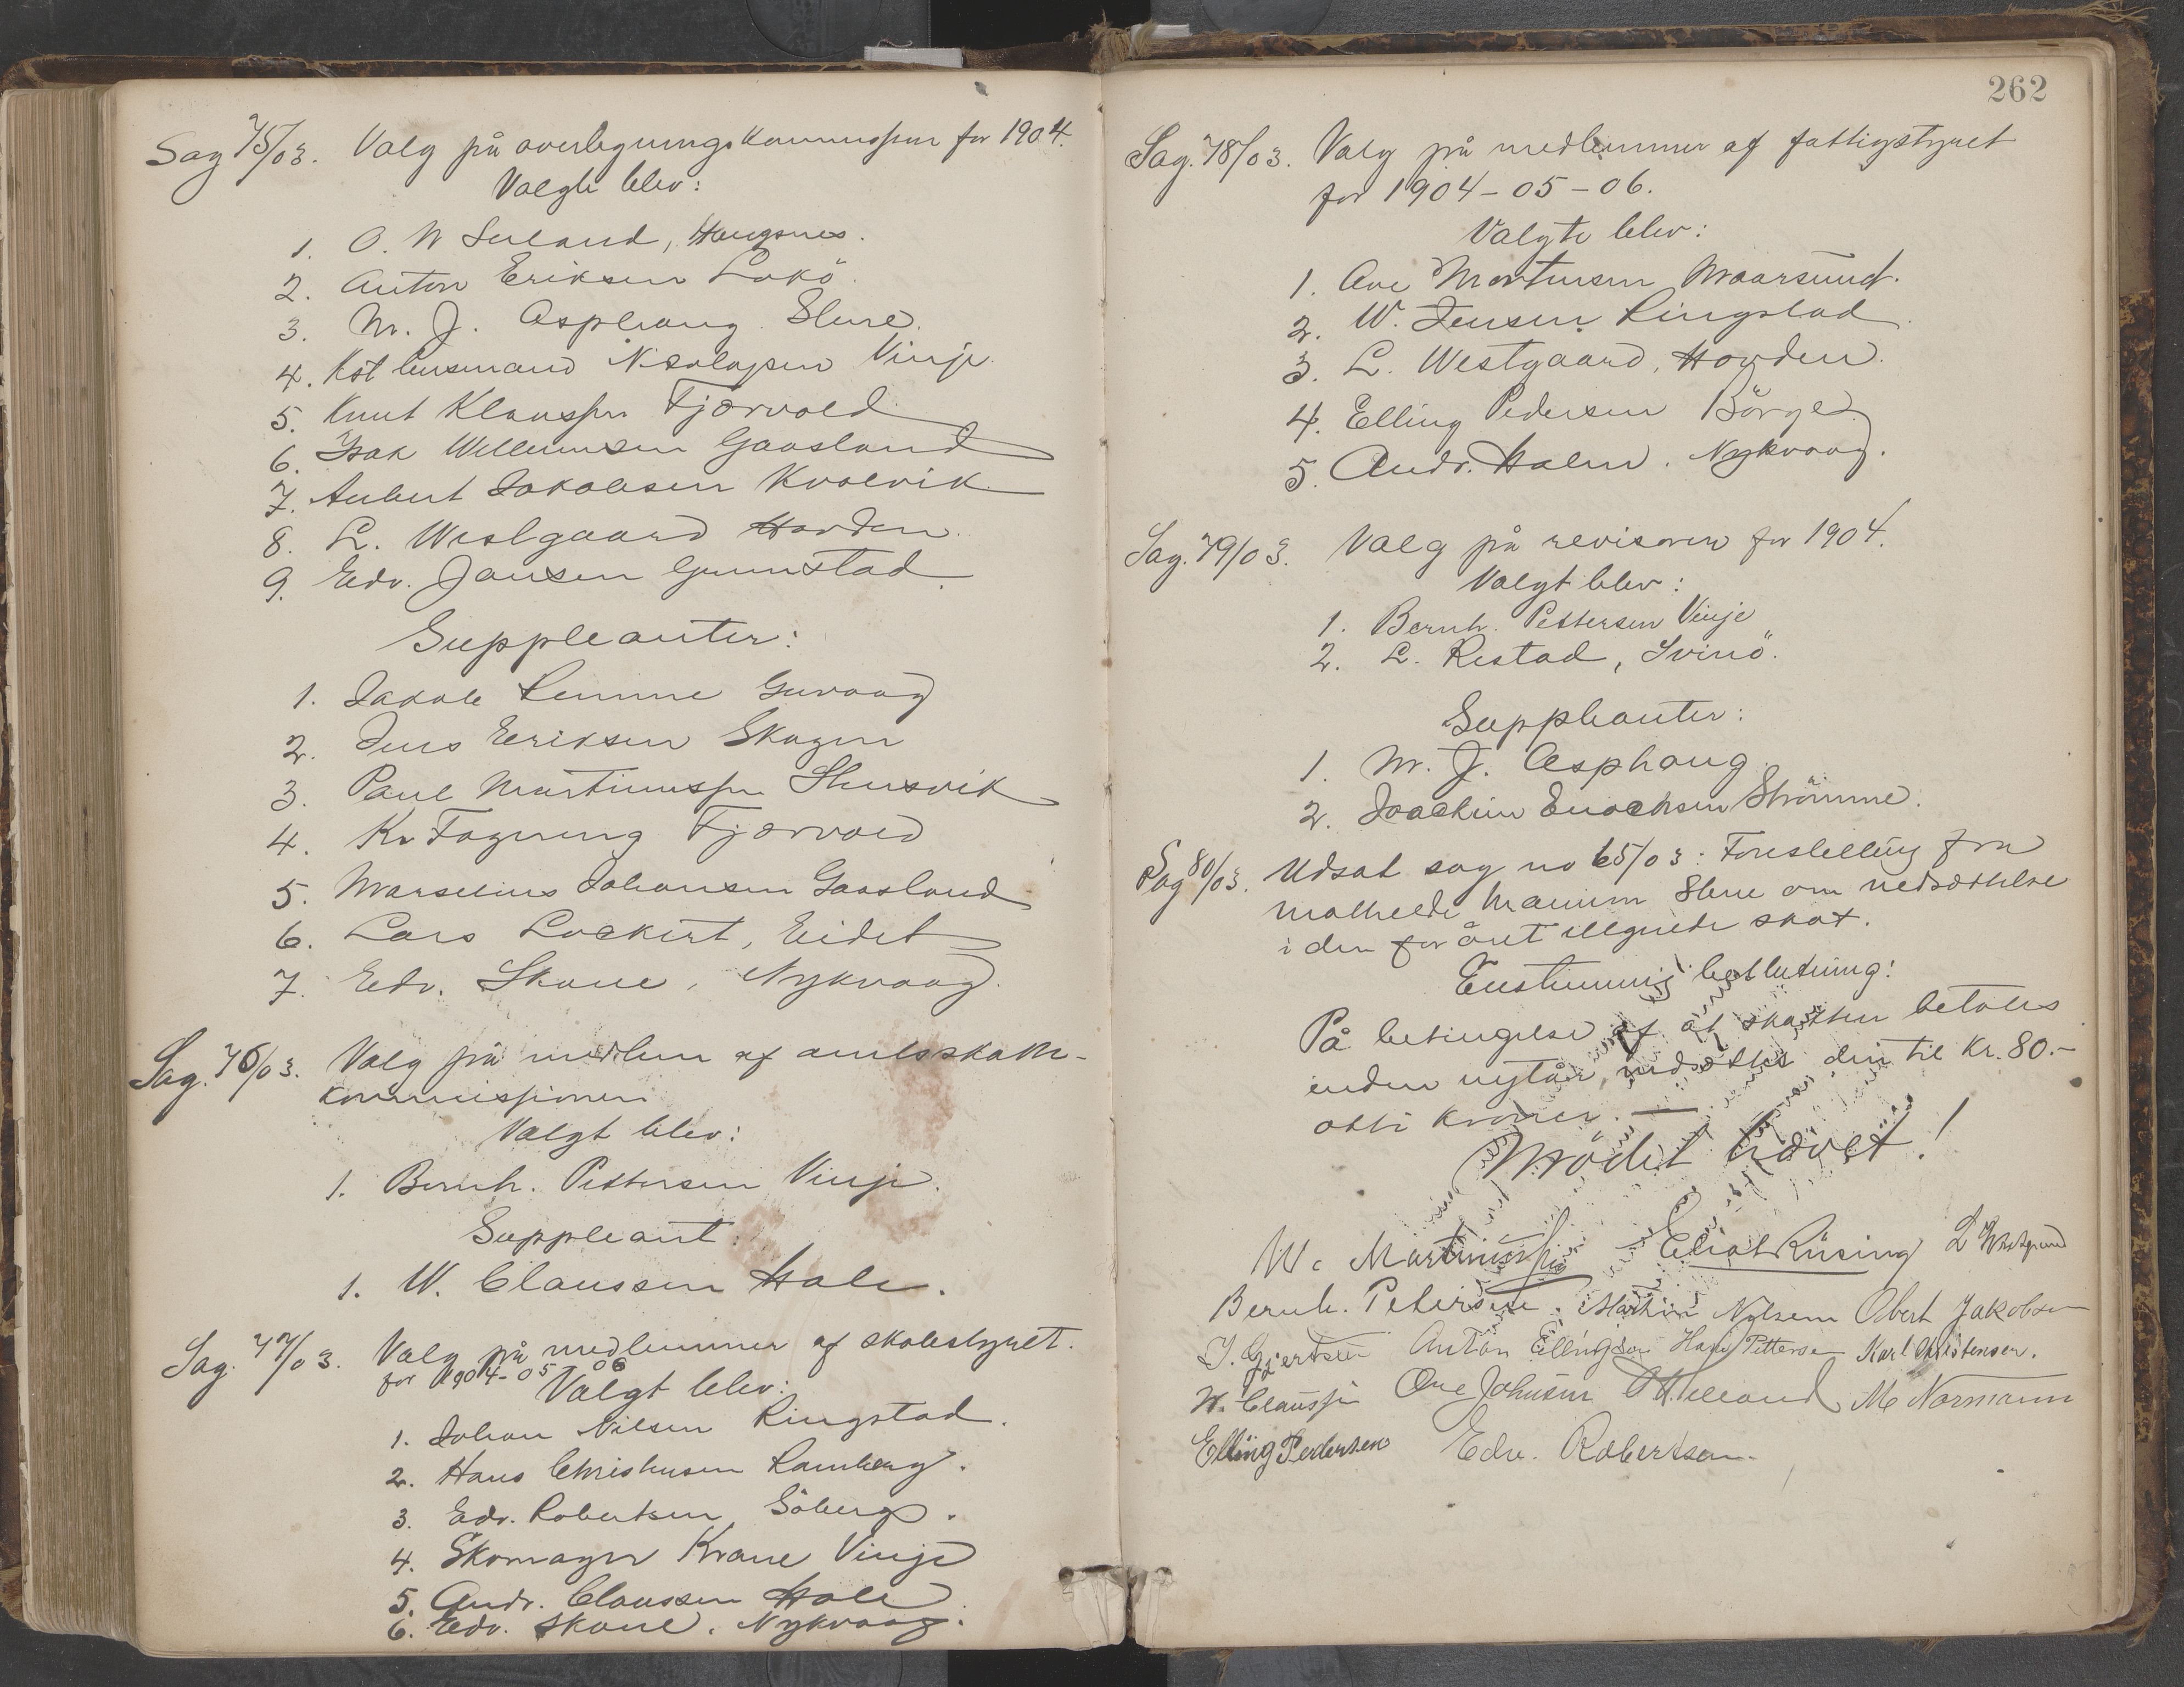 Sag 75/03. Valg på overligningskommissjon for 1904.
Valgte blev:
1. O. W Seland, Haugsnes.
2. Anton Eriksen Lokö.
3. M. J. Asphaug Stene.
4. Kst lensmand Nikolaysen Vinje.
5. Knut Klaussen Fjærvold
6. Isak Willumsen Gaasland
7. Aubert Jakobsen Kvalvik
8. L. Westgaard Hovden.
9. Edv. Jansen Guunstad.
Suppleanter:
1. Jakob Remme Guvaag
2. Jens Eriksen Skagen
3. Paul Martinussen Skusvik
4. Kr Fagereng Fjærvold
5. Marselius Johansen Gaasland
6. Lars Lockert, Eidet
7. Edv. Skaue, Nykvaag.
Sag. 76/03. Valg på medlem af amtsskatte-
kommissionen
Valgt blev:
1. Bernh. Pettersen Vinje.
Suppleant:
1. W. Claussen Hole.
Sag. 77/03. Valg på medlemmer af skolestyret.
for 1904-05-06
Valgt blev:
1. Johan Nilsen Ringstad.
2. Hans Christensen Ramberg.
3. Edv. Robertsen Söberg.
4. Skomager Krane Vinje
5. Andr. Claussen Hole
6. Edv. Skaue, Nykvaag.
262
Sag. 78/03. Valg på medlemmer af fattigstyret
for 1904-05-06.
Valgte blev:
1. Ove Mortensen Maarsund.
2. W. Jensen Ringstad.
3. L. Westgaard, Hovden.
4. Elling Pedersen Börge.
5. Andr. Holm. Nykvaag.
Sag. 79/03. Valg på revisorer for 1904.
Valgt blev:
1. Bernh. Pettersen Vinje
2. L. Restad, Svinö.
Suppleanter:
1. M. J. Asphaug
2. Joachim Enochsen Strömme.
Sag 80/03. Udsat sag no 65/03: Forestilling fra
Mathilde Stene om nedsættelse
i den for året ilignede skat.
Enstemmig beslutning:
På betingelse af at skatten betales
inden nytår, nedsættes den til Kr. 80.-
otti kroner. —
Mödet hævet!
W. Martinussen Röising L Westgaard
Bernh. Petersen. Martin Nilsen Obert Jakobsen
J. Gjertsen Anton Ellingsen Hans Pettersen Karl Kristensen.
W. Claussen Ove Johnsen O W Seland M. Normann
Elling Pedersen Edv. Robertsen.